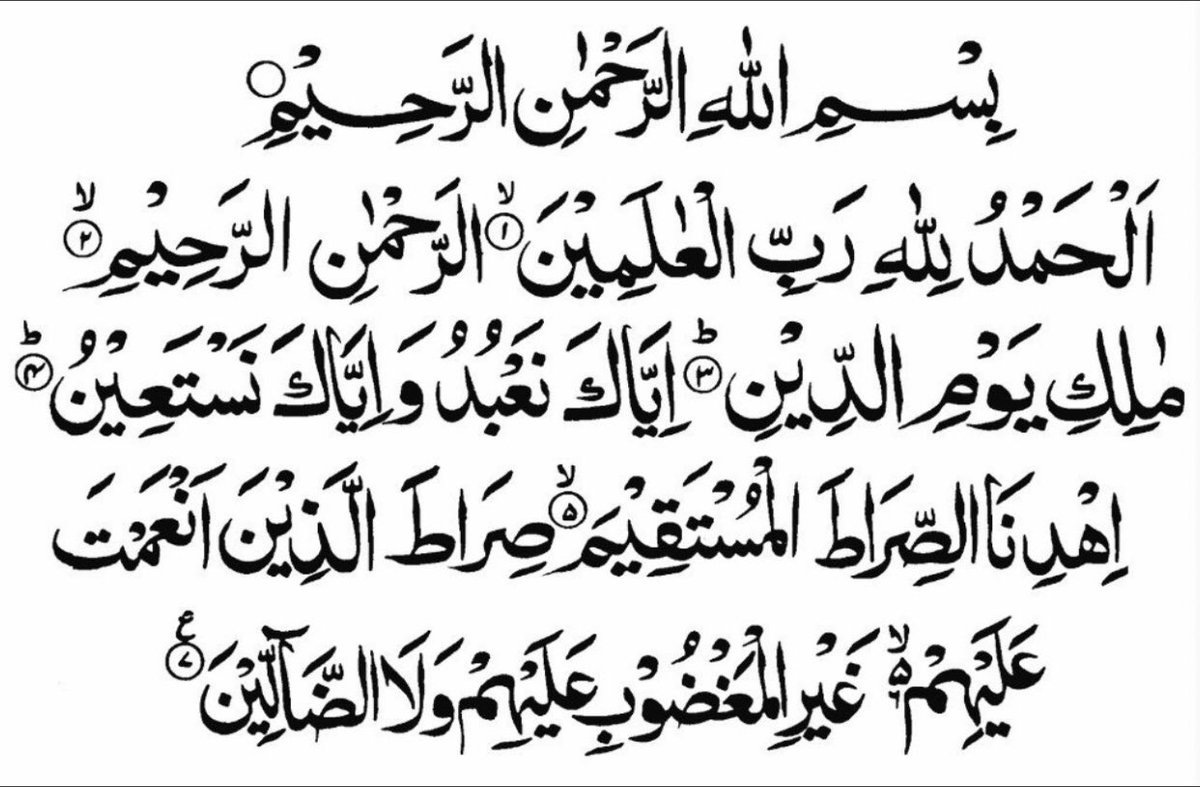 بِسْمِ اللّٰهِ الرَّحْمٰنِ الرَّحِيْمِ ۝
اَلْحَمْدُ لِلّٰهِ رَبِّ الْعٰلَمِيْنَ ۙ‏﴿۱﴾ الرَّحْمٰنِ الرَّحِيْمِ ۙ‏﴿۲﴾
مٰلِكِ يَوْمِ الدِّيْنِ ؕ‏﴿۳﴾ اِيَّاكَ نَعْبُدُ وَاِيَّاكَ نَسْتَعِيْنُ ؕ‏﴿۴﴾
اِهْدِنَا الصِّرَاطَ الْمُسْتَقِيْمَ ۙ‏﴿۵﴾ صِرَاطَ الَّذِيْنَ اَنْعَمْتَ
عَلَيْهِمْ ۙ۬ۦ غَيْرِ الْمَغْضُوْبِ عَلَيْهِمْ وَلَا الضَّآلِّيْنَ ع‏﴿۷﴾